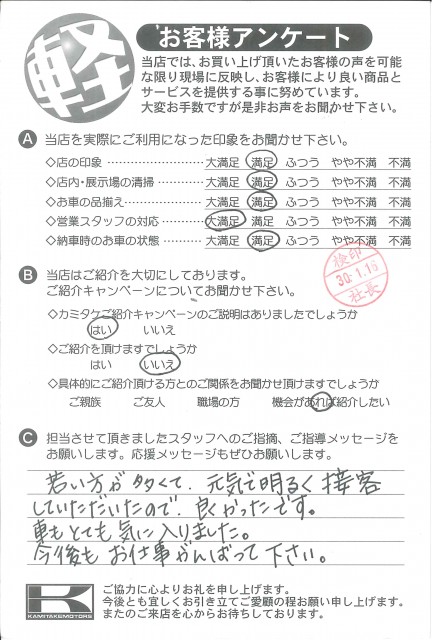 軽
お客様アンケート
当店では、お買い上げ頂いたお客様の声を可能
な限り現場に反映し、お客様により良い商品と
サービスを提供する事に努めています。
大変お手数ですが是非お声をお聞かせ下さい。
A 当店を実際にご利用になった印象をお聞かせ下さい。
◇店の印象 ……………… 大満足 満足 ふつう やや不満 不満
◇店内・展示場の清掃 ………… 大満足 満足 ふつう やや不満 不満
◇お車の品揃え ……………… 大満足 満足 ふつう やや不満 不満
◇営業スタッフの対応 ………… 大満足 満足 ふつう やや不満 不満
◇納車時のお車の状態 ………… 大満足 満足 ふつう やや不満 不満
検印
30.1.16
社長
B 当店はご紹介を大切にしてあります。
ご紹介キャンペーンについてお聞かせ下さい。
◇カミタケご紹介キャンペーンのご説明はありましたでしょうか
はい いいえ
◇ご紹介を頂けますでしょうか
はい いいえ
◇具体的にご紹介頂ける方とのご関係をお聞かせ頂けますでしょうか
ご親族 ご友人 職場の方 機会があれば紹介したい
C 担当させて頂きましたスタッフへのご指摘、ご指導メッセージを
お願いします。応援メッセージもぜひお願いします。
若い方が多くて、元気で明るく接客
していただいたので、良かったです。
車もとても気に入りました。
今後もお仕事がんばって下さい。
K
KAMITAKEMOTORS
ご協力に心よりお礼を申し上げます。
今後とも宜しくお引き立てご愛顧の程お願い申し上げます。
またのご来店を心からお待ちしております。